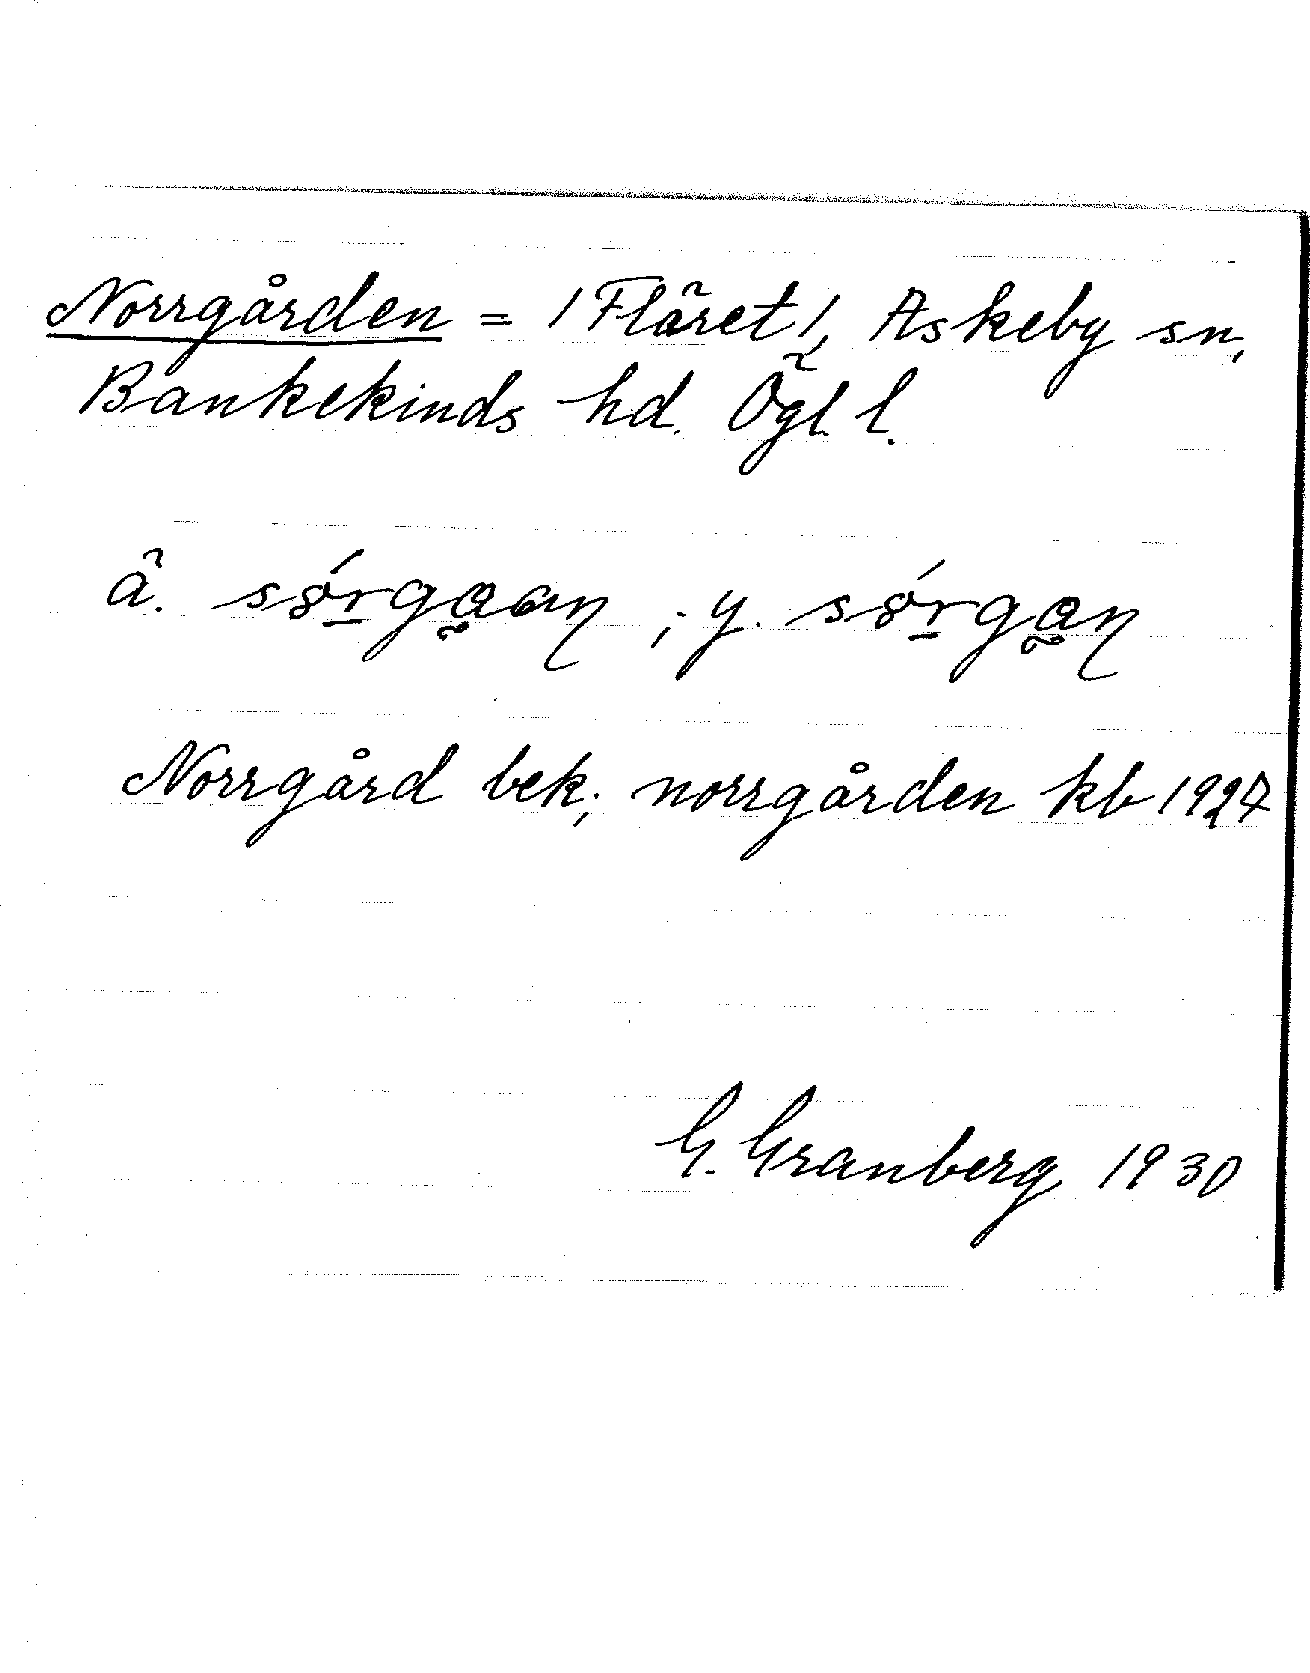 Norrgården = /Fläret/, Askeby sn,
Bankekinds hd. Ögl. l.
ä. sǿrgaan ; y. sǿrgan
Norrgård bek; norrgården kb 1927
G. Granberg 1930